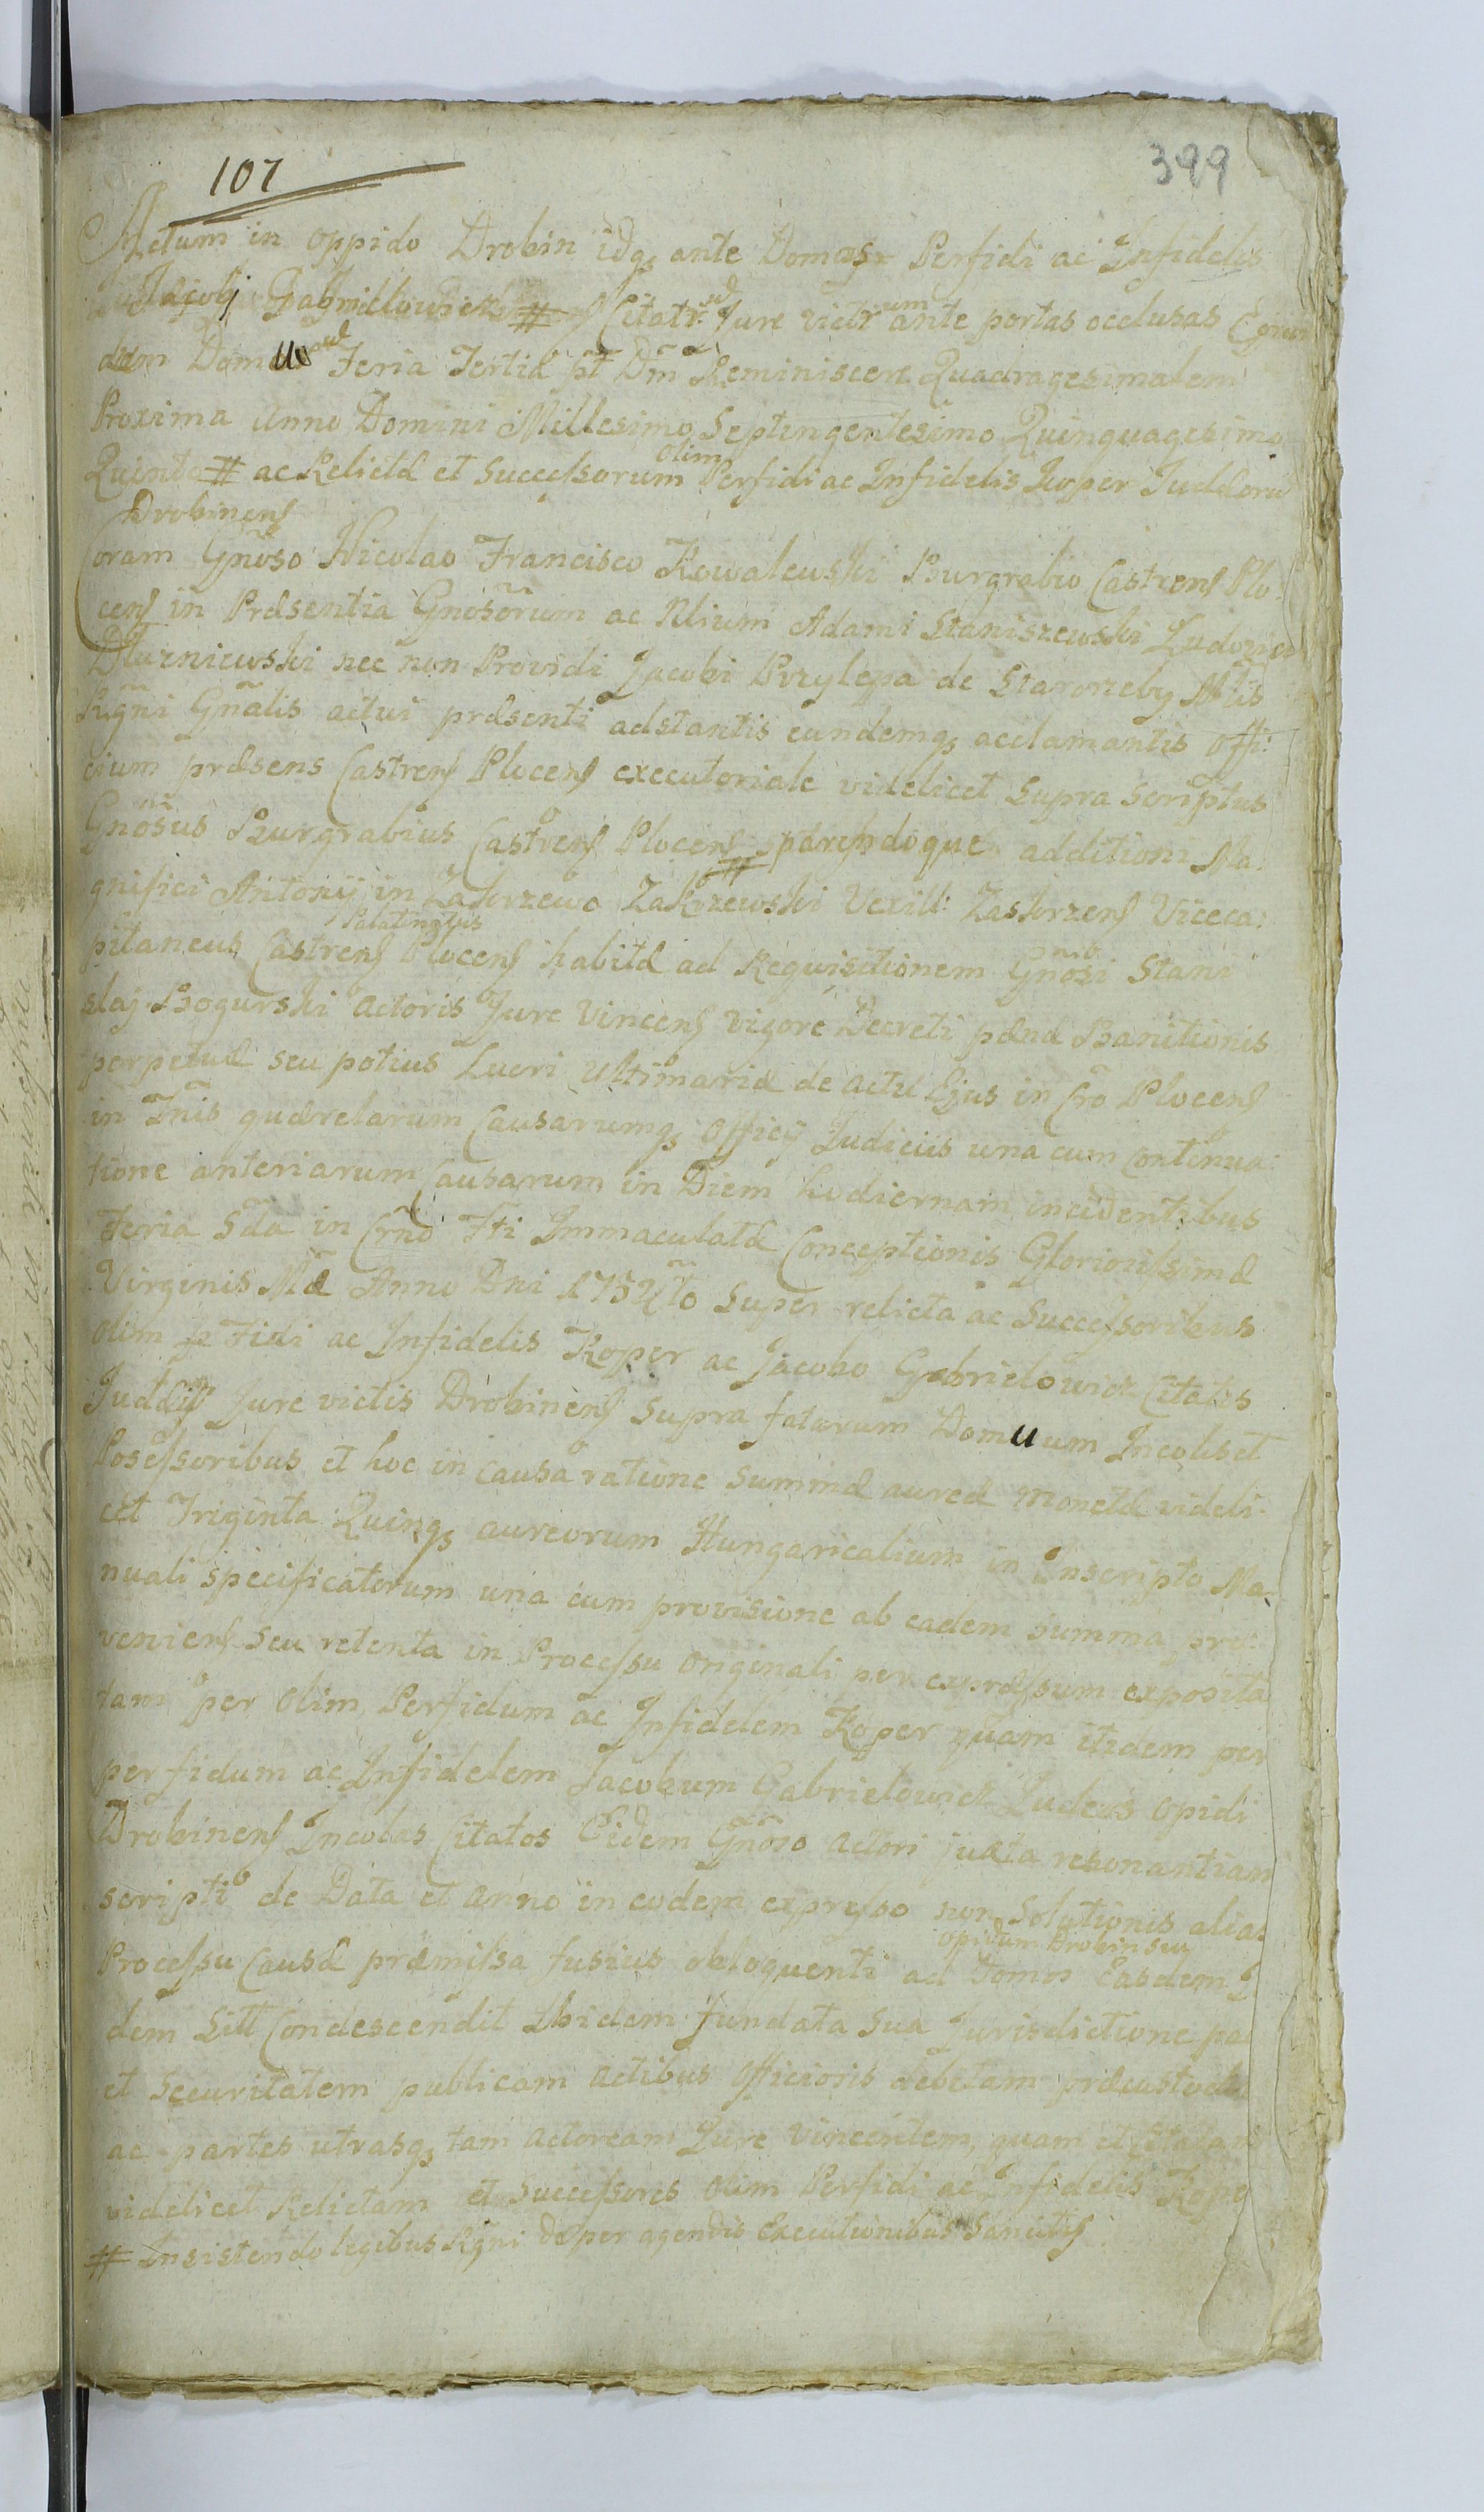 107
399
Actum in oppido Drobin idq3 ante Domos Perfidi ac Infidelis
Jacobi Gabrielowicz # Citatr. Jure victr um ante portas occlusas
dem Domuu Feria Tertia pt Dm Reminiscere Quadragesimalem
Proxima Anno Domini Millesimo Septingentesimo Quinquagesimo
Quinto # ac Relictæ et Successorum Olim Perfidi ac Infidelis Koper Judæoru
Drobinens
Coram Gnoso Nicolao Francisco Kowalewski Burgrabio Castrens Plo:
cens in Præsentia Gnosorum ac Nlium Adami Staniszewski Ludovici
Dluzniewski nec non Providi Jacobi Przylepa de Starorzeby Mtis
Rgni Gnalis actui præsenti adstantis eundemq3 acclamantis Offi:
cium præsens Castrens Plocens executoriale videlicet Supra Scriptus
Gnosus Burgrabius Castrens Plocens # parendoque additioni Ma:
gnifici Antonij in Zakrzewo Zakrzewski Vexill: Zaskrzens Viceca:
Palatinatus
pitaneus Castrens Plocens habitæ ad Requisitionem Gnosi Stani
slaj Bogurski Actoris Jure Vincens vigore Decreti pæna Banitionis
perpetuæ seu potius Lucri Ultimariæ de actu Ejus in Cro Plocens
in Tnis quærelarum Causarumq3 Officij Judiciis una cum Continua:
tione anteriarum Causarum in Diem hodiernam incidentibus
Feria Sda in Crno Fti Immaculatæ Conceptionis Gloriosissimæ
Virginis Mæ Anno Dni 1754to Super relicta ac Successoribus
Olim p Fidi ac Infidelis Koper ac Jacobo Gabrielowicz Citatis
Judæis Jure victis Drobinens Supra fatarum Domuum Incolis et
Posessoribus et hoc in causa ratione summæ aureæ Monetæ videli:
cet Triginta Quinq3 aureorum Hungaricalium in Inscripto Ma:
nuali specificatorum una cum provisione ab eadem summa pro:
veniens seu retenta in Processu Originali per expræssum exposita
tam per Olim Perfidum ac Infidelem Koper quam itidem per
perfidum ac Infidelem Jacobum Gabrielowicz Judeos Opidi
Drobinens Incolas Citatos Eidem Gnoso Actori juxta resonantiam
scripti de Data et Anno in eodem expresso non Solutionis alias
Processu Causæ præmissa fusius obloquenti ad Domos Easdem
opidum Drobin seu
dem Sitt Condescendit Ibidem fundata Sua Jurisdictione pa
et Securitatem publicam Actibus Officiosis debitam præcustodi
ac partes utrasq3 tam Actoream Jure Vincentem, quam et Citatam
videlicet Relictam et Successores Olim Perfidi ac Infidelis Kope
# Insistendo legibus Rgni de per agendis Executionibus Sancitis